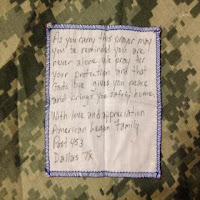 As you carry this prayer may
you be reminded you are
never alone. We pray for
your protection and that
Gods love gives you peace
and brings you safely home.
With love and appreciation
American Legion Family
Post 453
Dallas TX